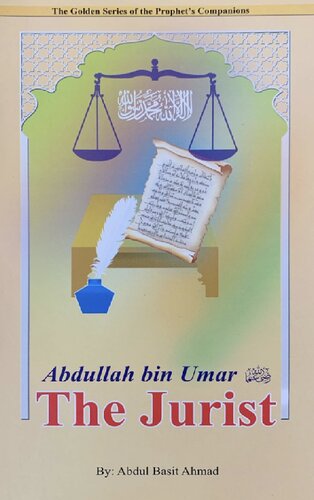 The Golden Series of the Prophet's Companions
لا إله إلا الله محمد رسول الله
Abdullah bin Umar رضي الله عنهما
The Jurist
By: Abdul Basit Ahmad